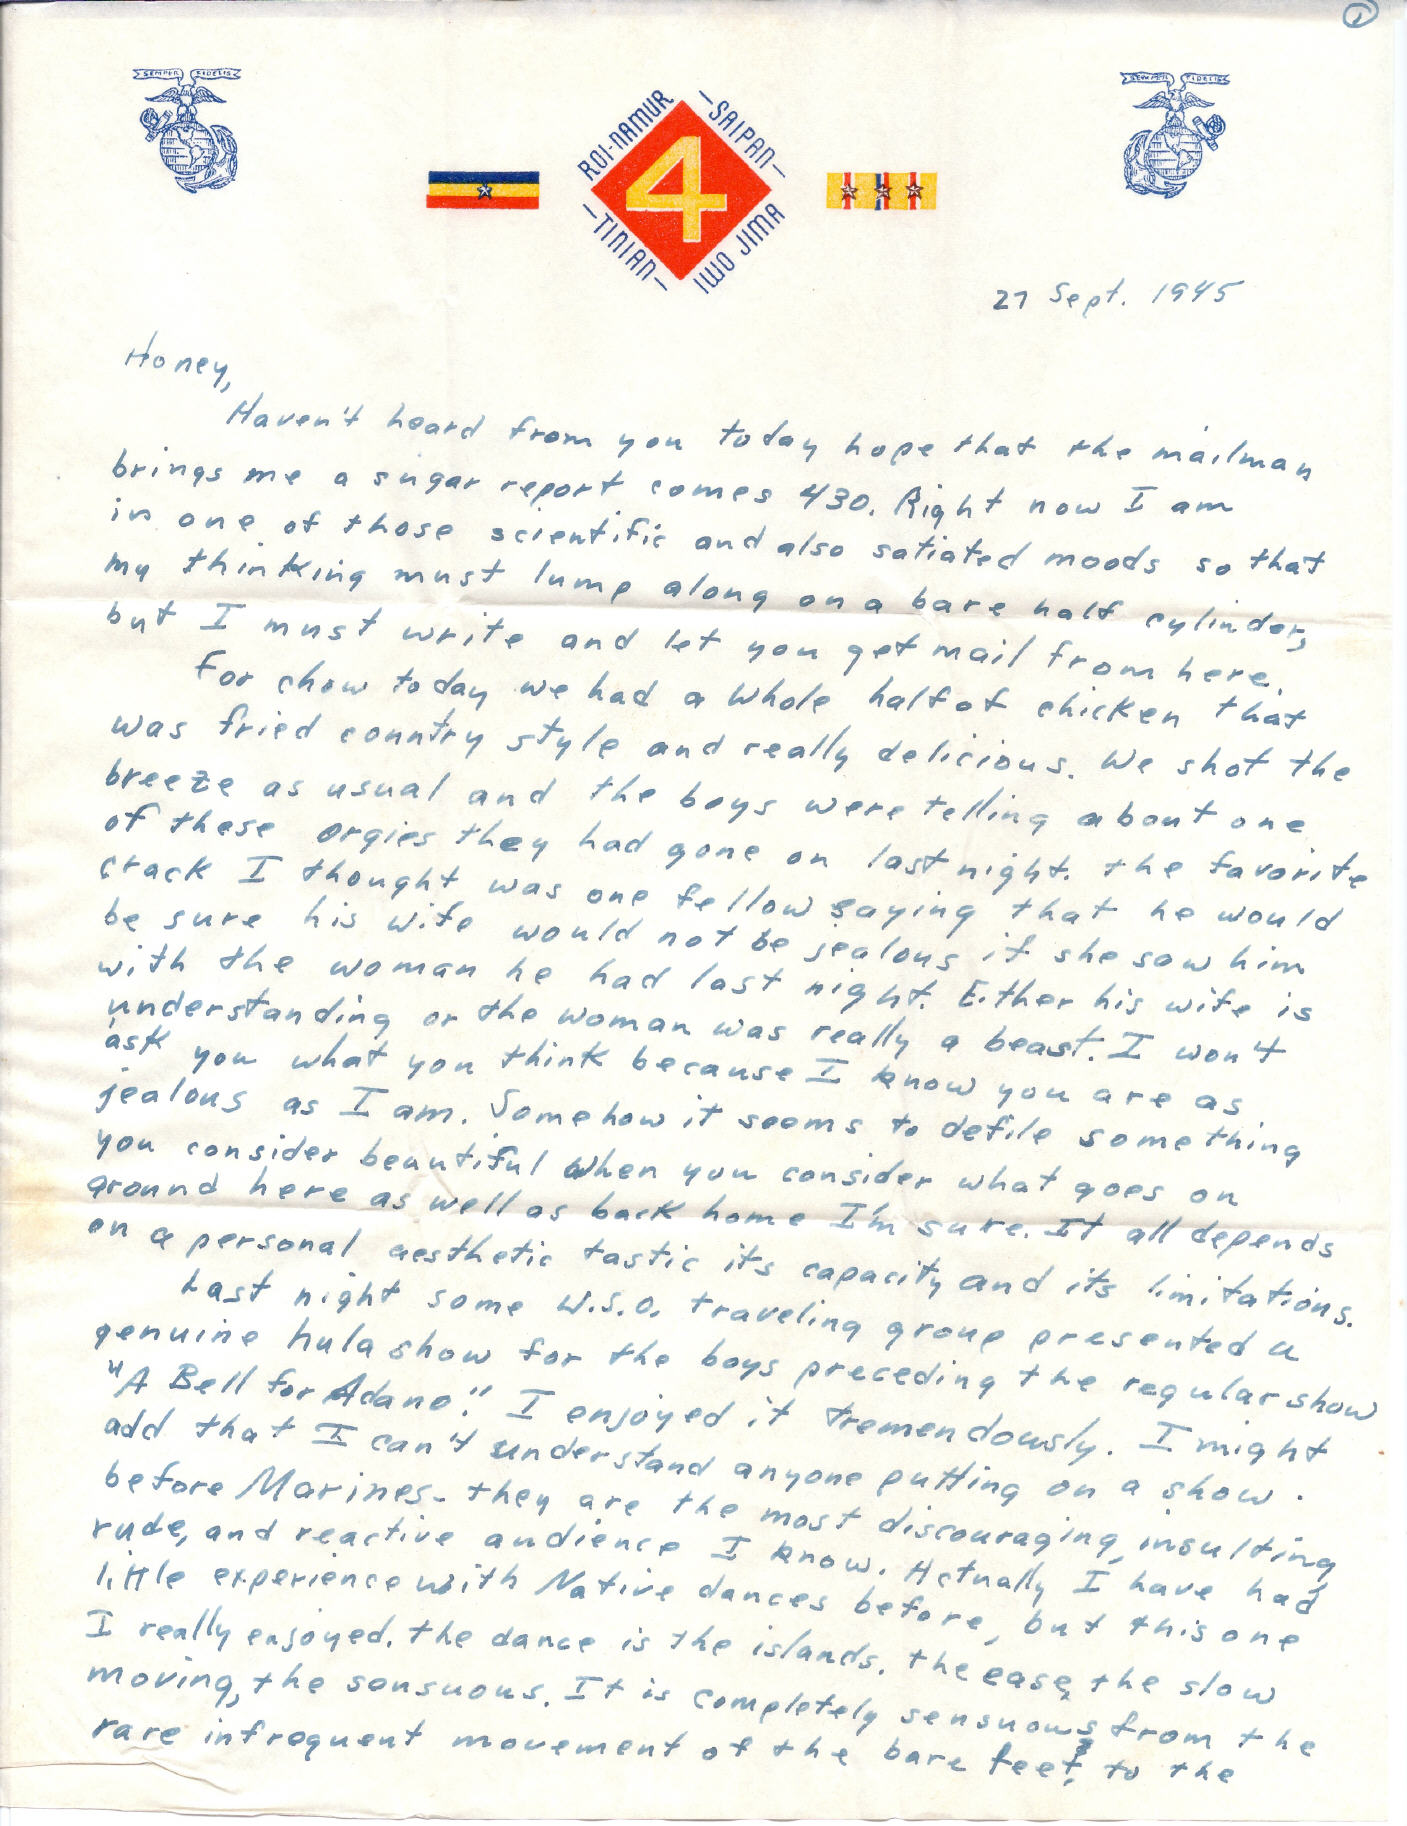 1
SEMPER FIDELIS
SEMPER FIDELIS
ROI-NAMUR
—SAIPAN—
4
—TINIAN—
IWO JIMA
27 Sept. 1945
Honey,
Haven't heard from you today hope that the mailman
brings me a sugar report comes 430. Right now I am
in one of those scientific and also satiated moods so that
my thinking must lump along on a bare half cylinder,
but I must write and let you get mail from here.
For chow today we had a whole half of chicken that
was fried country style and really delicious. We shot the
breeze as usual and the boys were telling about one
of these orgies they had gone on last night. the favorite
crack I thought was one fellow saying that he would
be sure his wife would not be jealous if she saw him
with the woman he had last night. Either his wife is
understanding or the woman was really a beast. I won't
ask you what you think because I know you are as
jealous as I am. Somehow it seems to defile something
you consider beautiful when you consider what goes on
around here as well as back home I'm sure. It all depends
on a personal aesthetic tastic its capacity and its limitations.
Last night some U.S.O. traveling group presented a
genuine hula show for the boys preceding the regular show
"A Bell for Adano." I enjoyed it tremendously. I might
add that I can't understand anyone putting on a show
before Marines - they are the most discouraging, insulting
rude, and reactive audience I know. Actually I have had
little experience with Native dances before, but this one
I really enjoyed. the dance is the islands. the ease, the slow
moving, the sensuous. It is completely sensuous from the
rare infrequent movement of the bare feet, to the